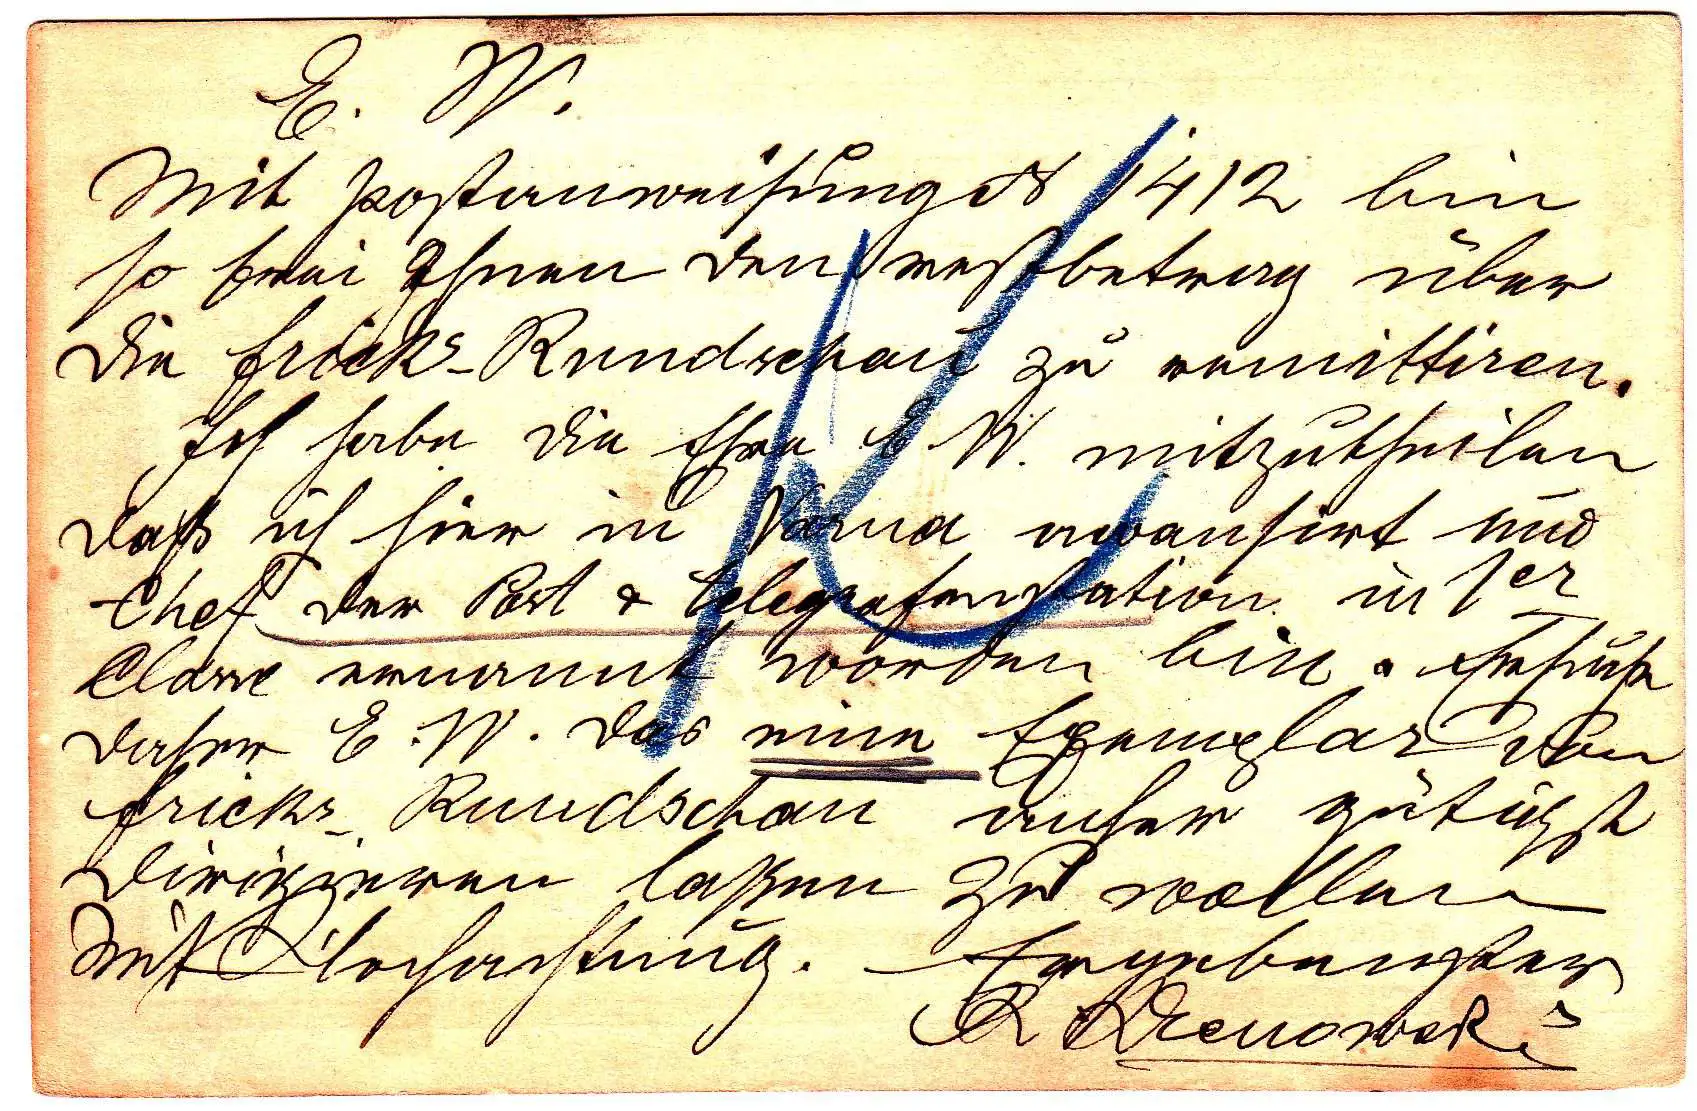 E. W.
Mit Postanweisung № 1412 bin
so frei Ihnen den restbetrag über
die Fricks-Rundschau zu remittiren.
Ich habe die Ehre E W. mitzutheilen
daß ich hier in Varna avansirt und
Chef der Post & Telegrafenstation in 1er
Classe ernannt worden bin. Ersuche
daher E. W. das eine Exemplar von
Fricks-Rundschau anher gütigst
dirigieren laßen zu wollen
Mit Hochachtung. Ergebenster